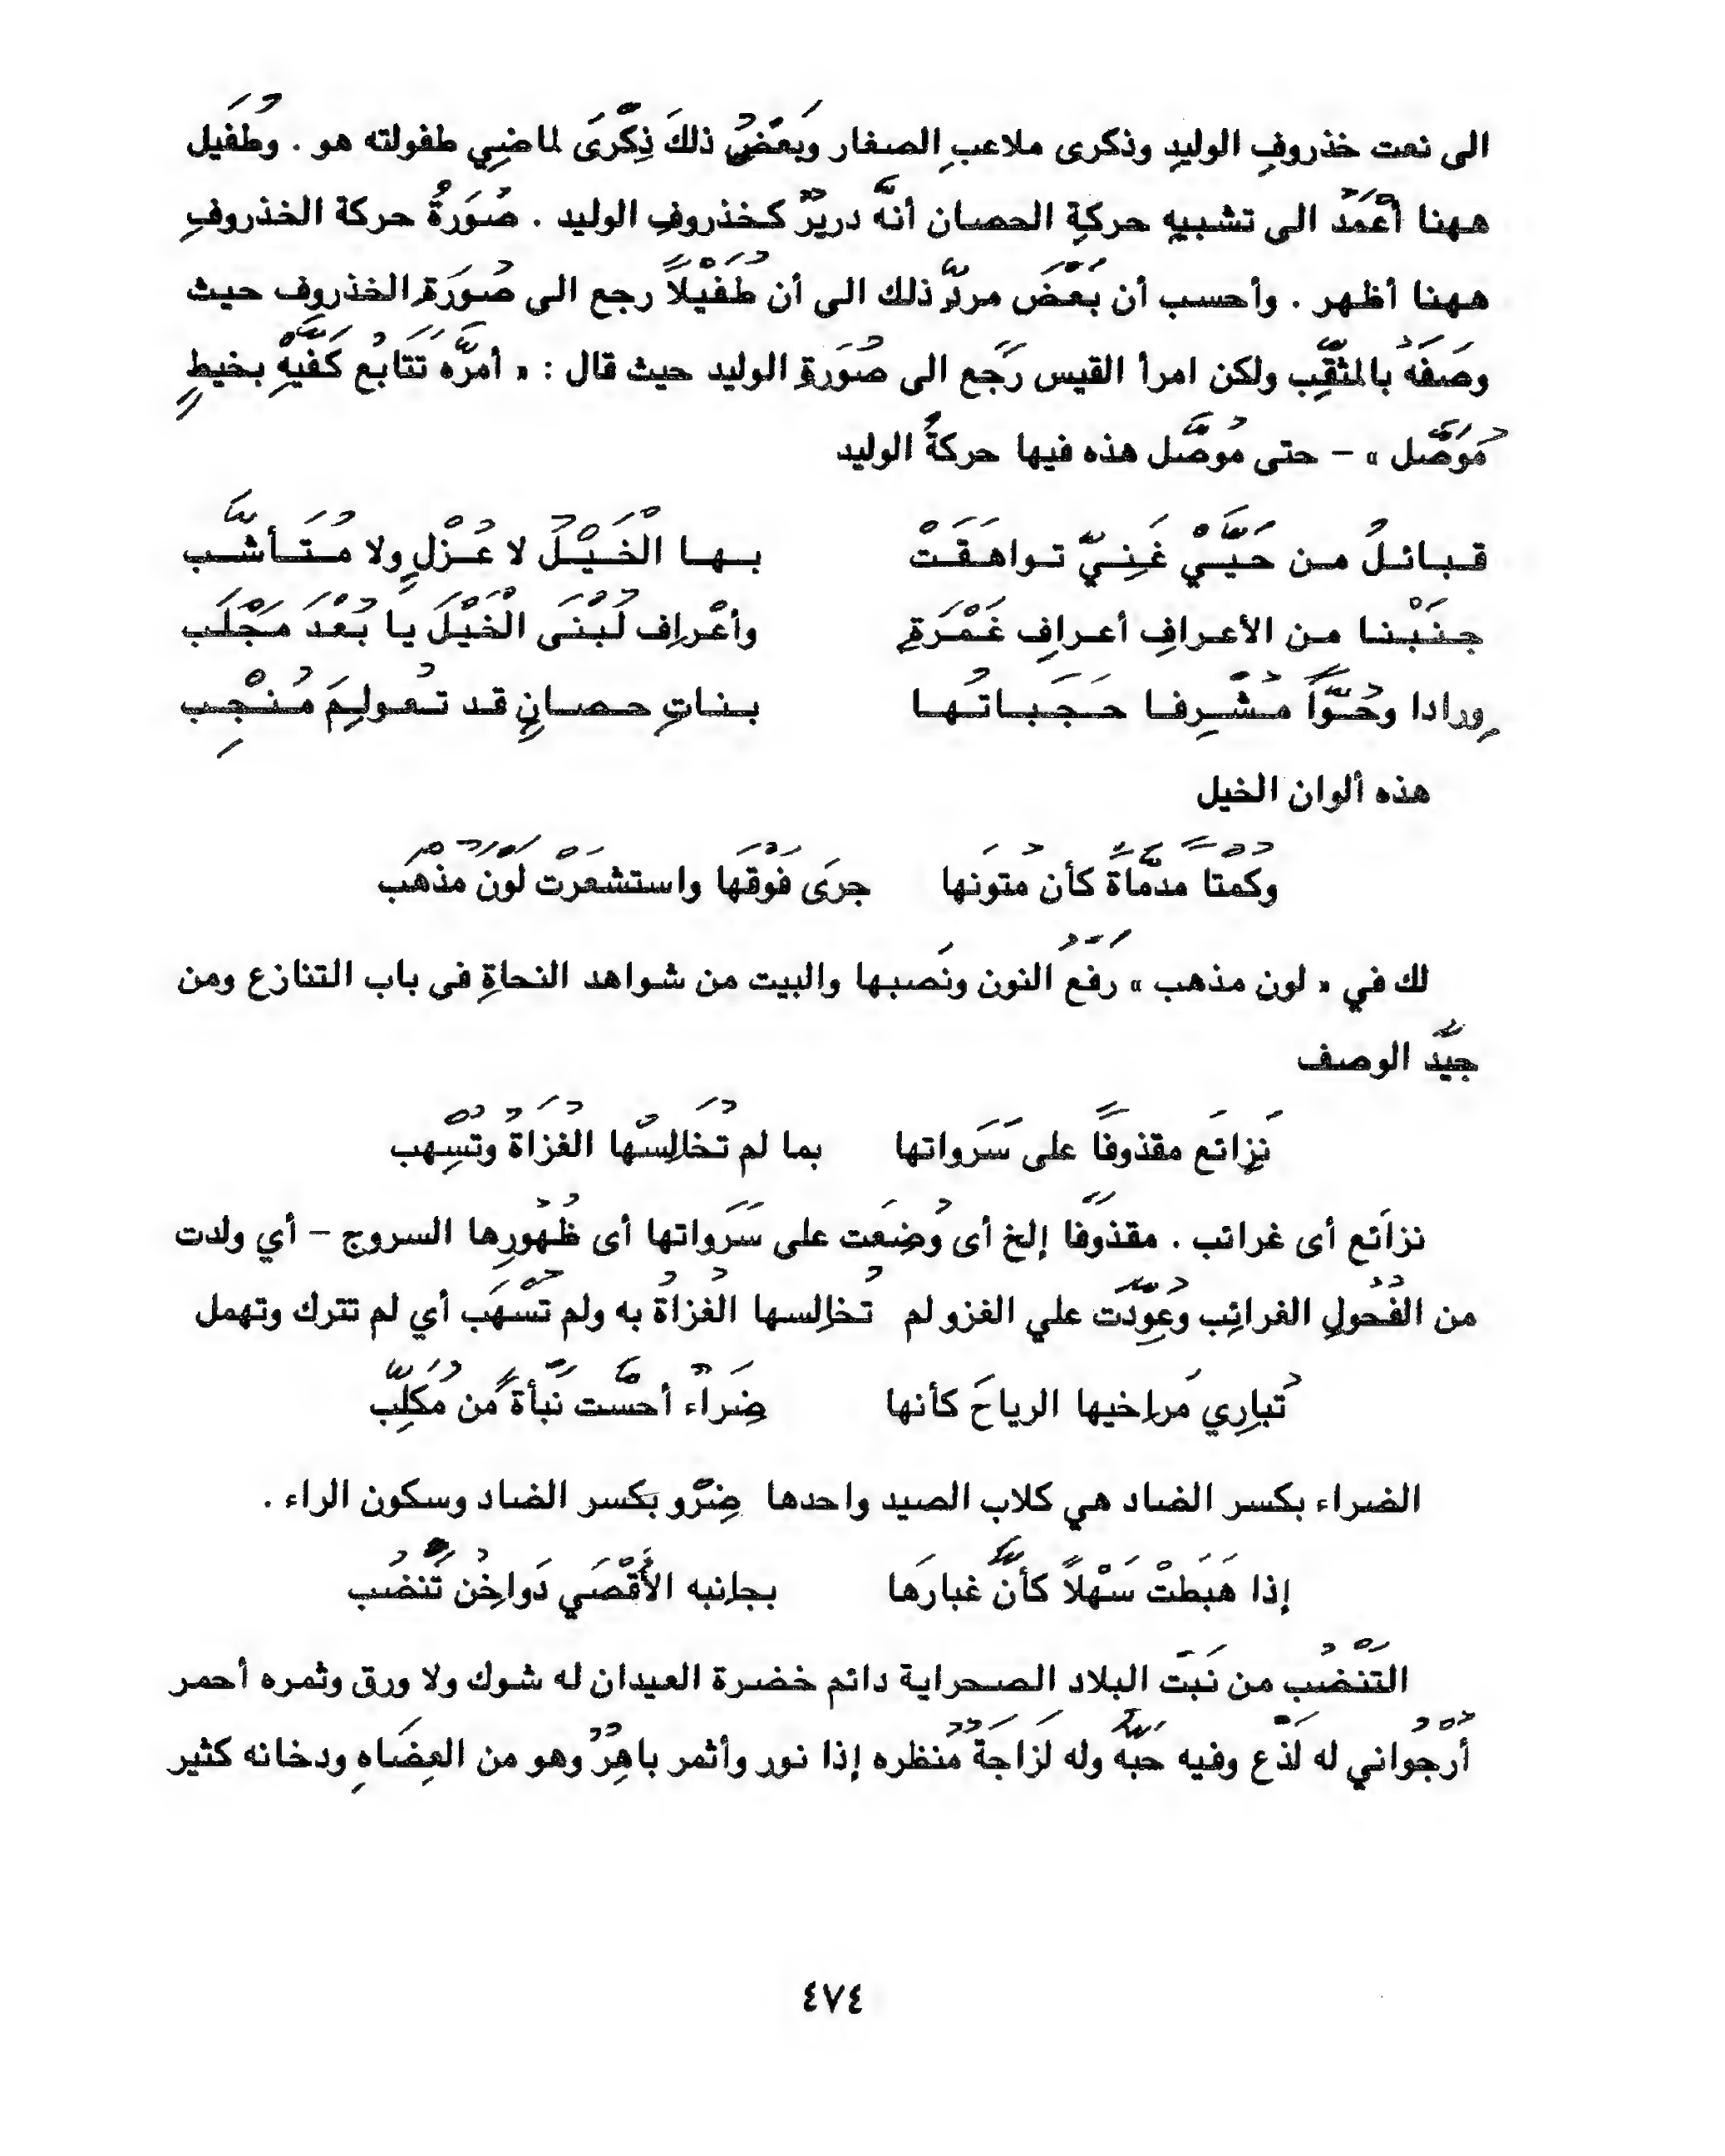 الى نعت خذروفِ الوليدِ وذكرى ملاعبِ الصغار وبَعْضُ ذلكَ ذِكْرَى لماضِي طفولته هو . وطُفَيل
ههنا أَعْمَدُ الى تشبيهِ حركةِ الحصان أنهَّ دريرٌ كخذروفِ الوليد . صُورَةُ حركة الخذروفِ
ههنا أظهر . وأحسب أن بَعْضَ مردِّ ذلك الى أن طُفَيْلاً رجع الى صُورَةِ الخذروف حيث
وصَفَهُ بالمثقَّب ولكن امرأ القيس رَجَع الى صُورَةِ الوليد حيث قال : « أمرَّه تَتَابُع كَفَّيْهِ بخيطٍ
مُوَصَّل » – حتى مُوصَّل هذه فيها حركةُ الوليد
قبائلُ من حَيَّيْ غَنِيّ تواهَقَتْ بها الْخَيْلُ لا عُزْلٍ ولا مُتَأشَّب
جنَبْنا من الأعرافِ أعرافِ غَمْرَةٍ وأعْرافِ لُبْنَى الْخَيْلَ يا بُعْدَ مَجْلَب
وِرادا وحُوّاً مُشْرِفا حَجَباتُها بناتِ حصانٍ قد تُعولِمَ مُنْجِب
هذه ألوان الخيل
وكُمْتا مدمَّاةً كأن مُتونَها جرَى فَوْقَها واستشعَرتْ لَوْنَ مُذْهَب
لك في « لون مذهب » رفَعُ النون ونَصبها والبيت من شواهد النحاةِ في باب التنازع ومن
جيَّد الوصف
نَزِائَع مقذوفاً على سَرَواتها بما لم تُخَالِسْها الغُزاةُ وتُسْهِب
نزائَع أى غرائب . مقذوفًا إلخ أى وُضِعَت على سَرَواتها أى ظُهُورِها السروج – أي ولدت
من الفُحُولِ الغرائِب وعُوِّدَت علي الغزو لم تُخالِسها الغُزاةُ به ولم تُسْهَب أي لم تترك وتهمل
تُبارِي مَراخيها الرياحَ كأنها ضِرَاءٌ أحسَّت نَبْأةً من مُكَلِّب
الضراء بكسر الضاد هي كلاب الصيد واحدها ضِرْو بكسر الضاد وسكون الراء .
إذا هَبَطتْ سَهْلاً كأنَّ غبارَها بجانِبه الأَقْصَي دَواخِنُ تَنْضُب
التَنْضُب من نَبَت البلاد الصحراية دائم خضرة العيدان له شوك ولا ورق وثمره أحمر
أُرجُواني له لَذْع وفيه حَبَّه وله لَزاجَةٌ مَنظره إذا نور وأثمر باهِرٌ وهو من العِضَاهِ ودخانه كثير
٤٧٤